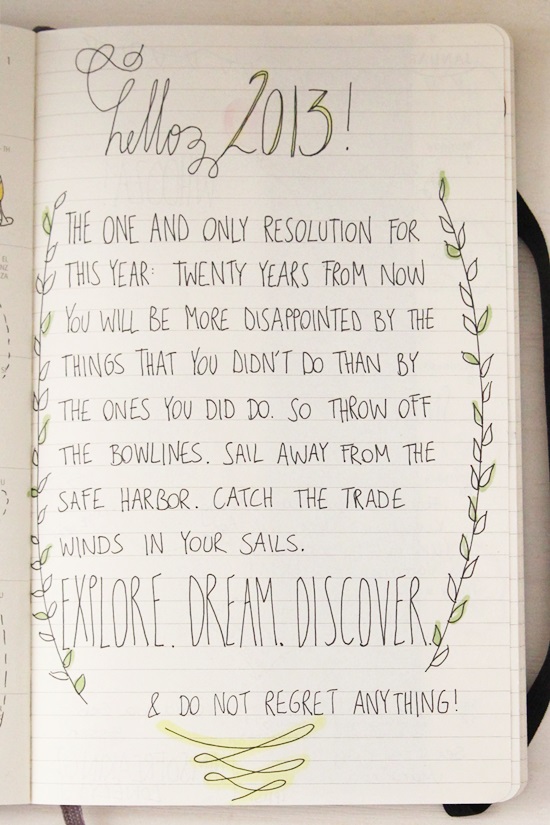 hello 2013!
THE ONE AND ONLY RESOLUTION FOR
THIS YEAR: TWENTY YEARS FROM NOW
YOU WILL BE MORE DISAPPOINTED BY THE
THINGS THAT YOU DIDN'T DO THAN BY
THE ONES YOU DID DO. SO THROW OFF
THE BOWLINES. SAIL AWAY FROM THE
SAFE HARBOR. CATCH THE TRADE
WINDS IN YOUR SAILS.
EXPLORE. DREAM. DISCOVER.
& DO NOT REGRET ANYTHING!